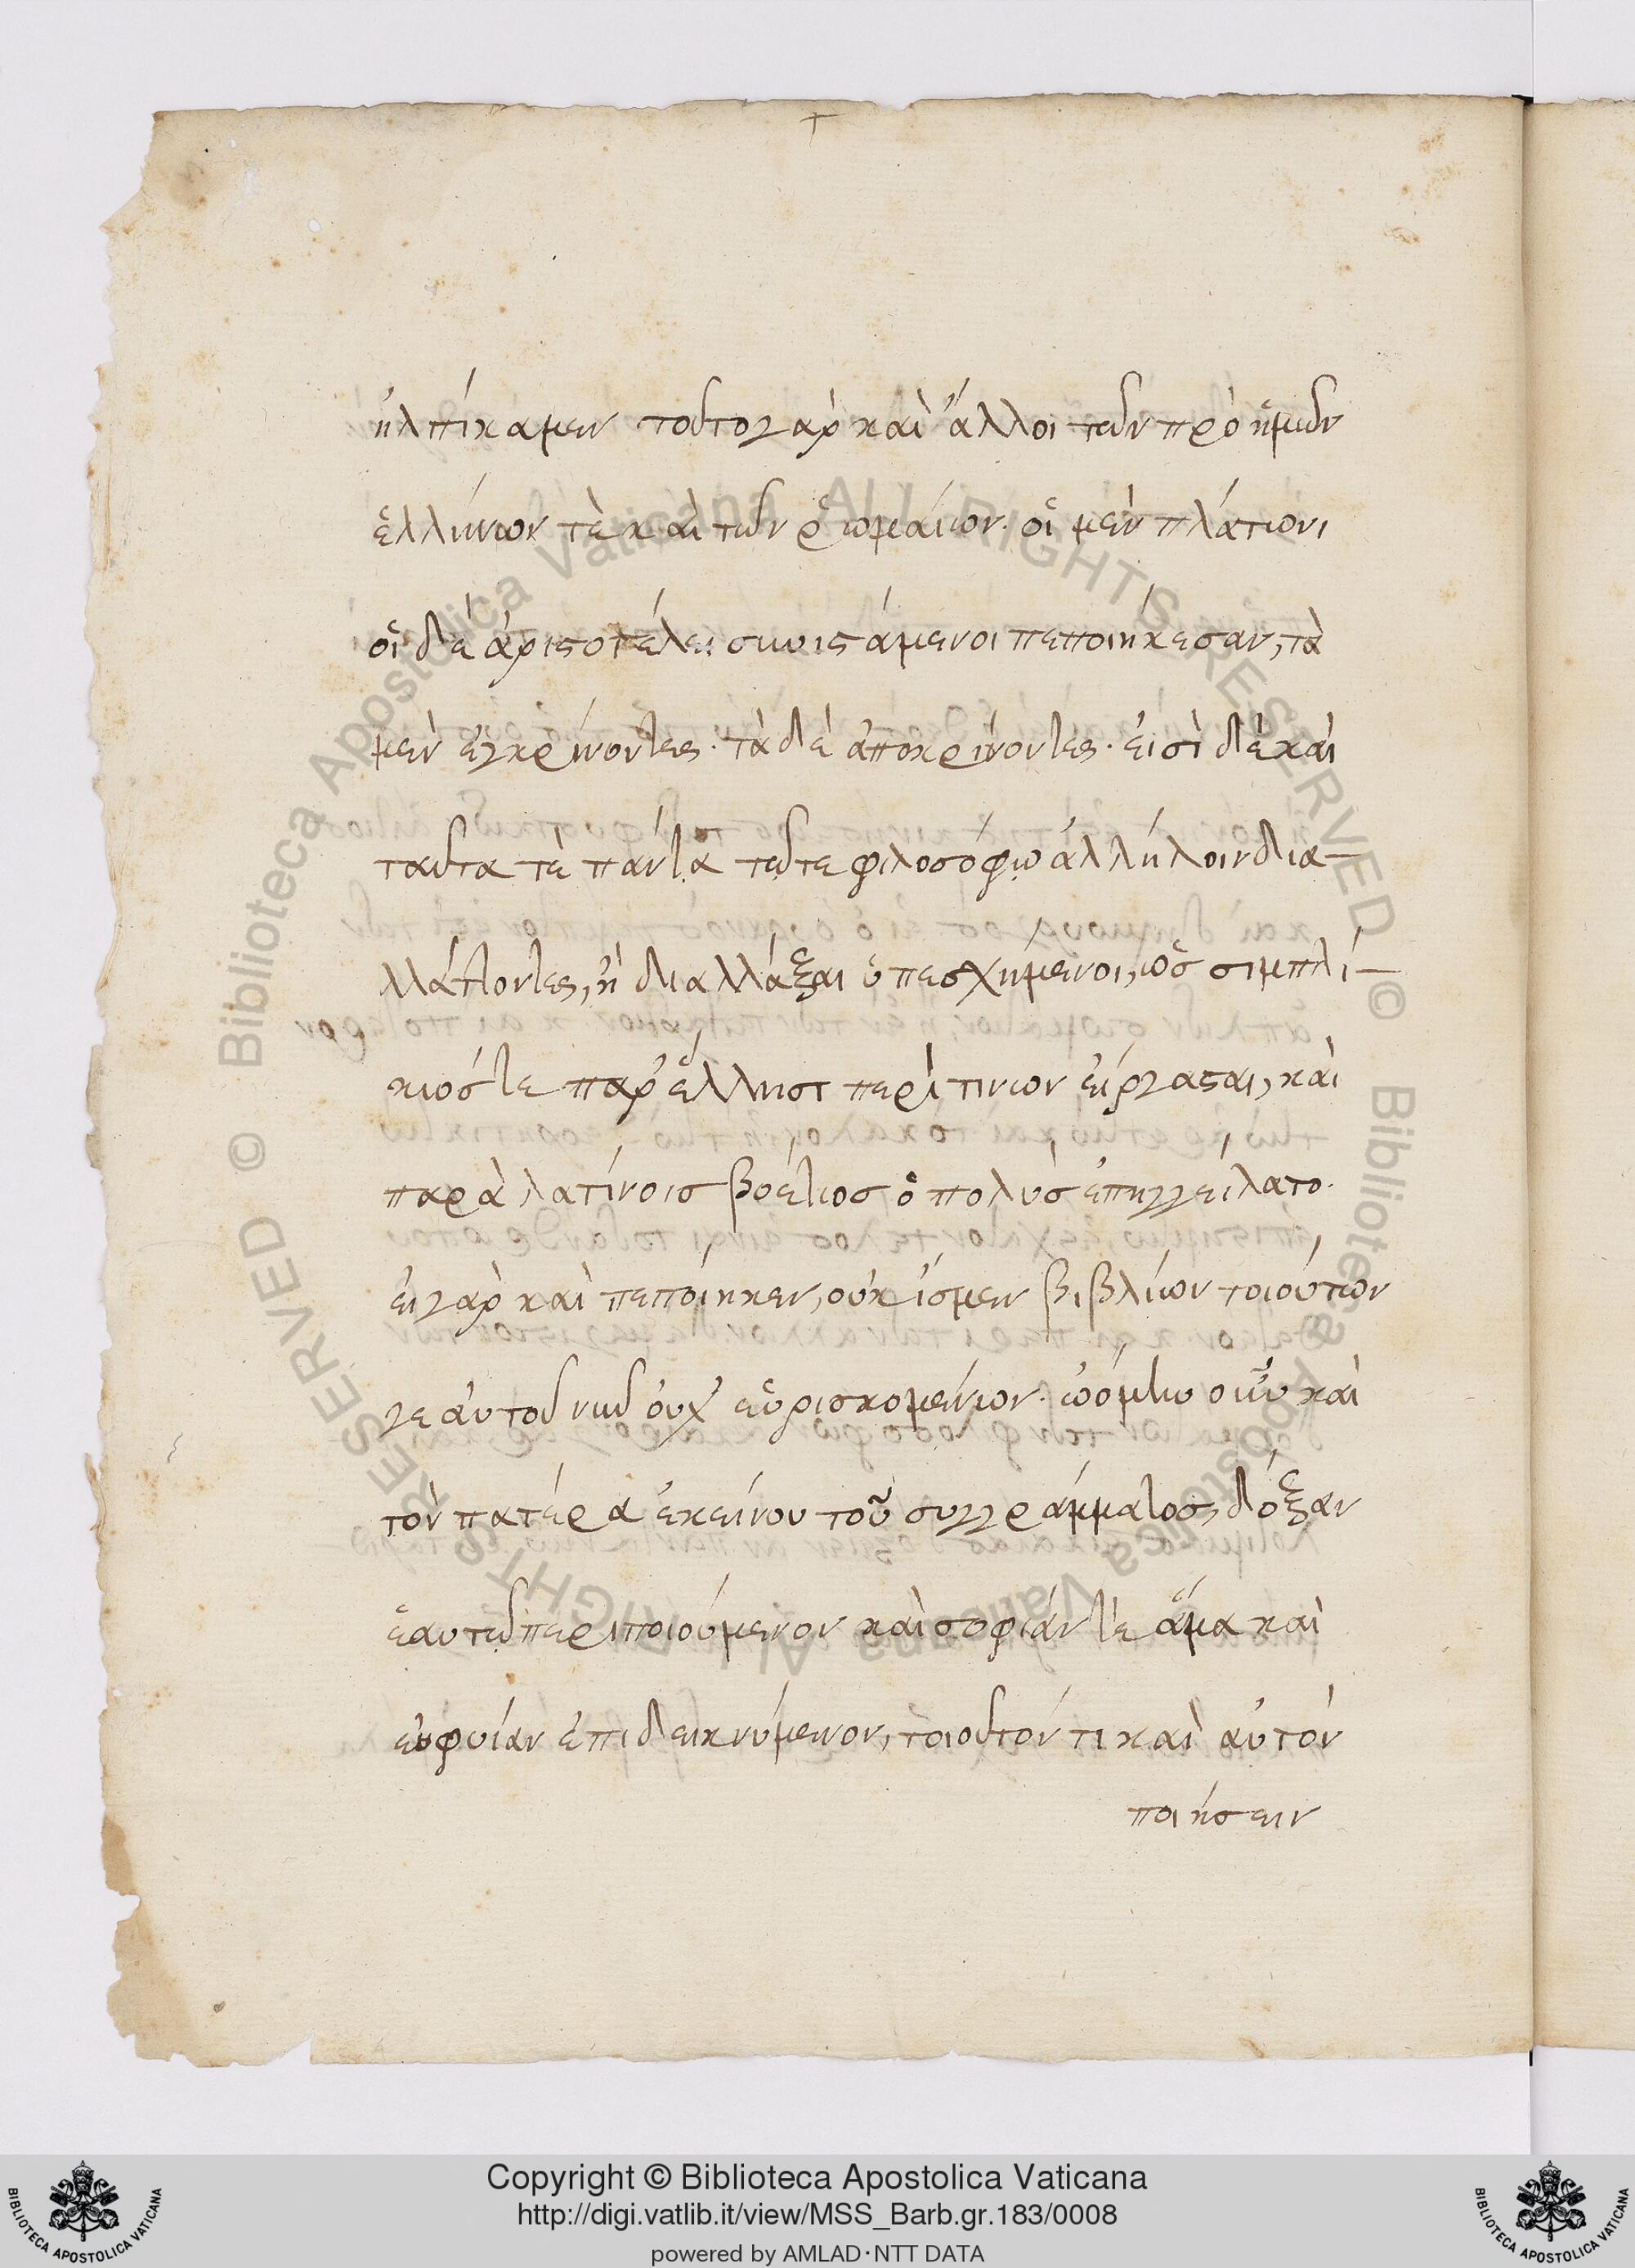 ἠλπίκαμεν τοῦτο γὰρ καὶ ἄλλοι τῶν πρὸ ἡμῶν
ἑλλήνων τὲ καὶ τῶν ῥωμαίων· οἱ μὲν πλάτωνι
οἱ δὲ ἀριστοτέλει συνιστάμενοι πεποιήκεσαν, τὰ
μὲν ἐγκρίνοντες· τὰ δὲ ἀποκρίνοντες· εἰσὶ δὲ καὶ
ταῦτα τὲ πάντα τῶτε φιλοσόφω ἀλλήλοιν δια-
λλάττοντες, ἢ διαλλάξαι ὑπεσχημένοι, ὡς σιμπλί-
κιός τε παρ' ἕλλησι περὶ τινων εἴργασται, καὶ
παρὰ λατίνοις βοέτιος ὁ πολὺς ἐπηγγείλατο·
εἰ γὰρ καὶ πεποίηκεν, οὐκ ἴσμεν βιβλίων τοιούτων
γε αὐτοῦ νῦν οὐχ εὑρισκομένων· ᾠόμην οὖν καὶ
τὸν πατέρα ἐκείνου τοῦ συγγράμματος, δόξαν
ἑαυτῷ περιποιούμενον καὶ σοφίάν τὲ ἅμα καὶ
εὐφυίαν ἐπιδεικνύμενον, τοιοῦτόν τι καὶ αὐτὸν
ποιήσειν
© Biblioteca Apostolica Vaticana ALL RIGHTS RESERVED © Biblioteca Apostolica Vaticana ALL RIGHTS RESERVED
Copyright © Biblioteca Apostolica Vaticana
http://digi.vatlib.it/view/MSS_Barb.gr.183/0008
powered by AMLAD·NTT DATA
BIBLIOTECA APOSTOLICA VATICANA
BIBLIOTECA APOSTOLICA VATICANA